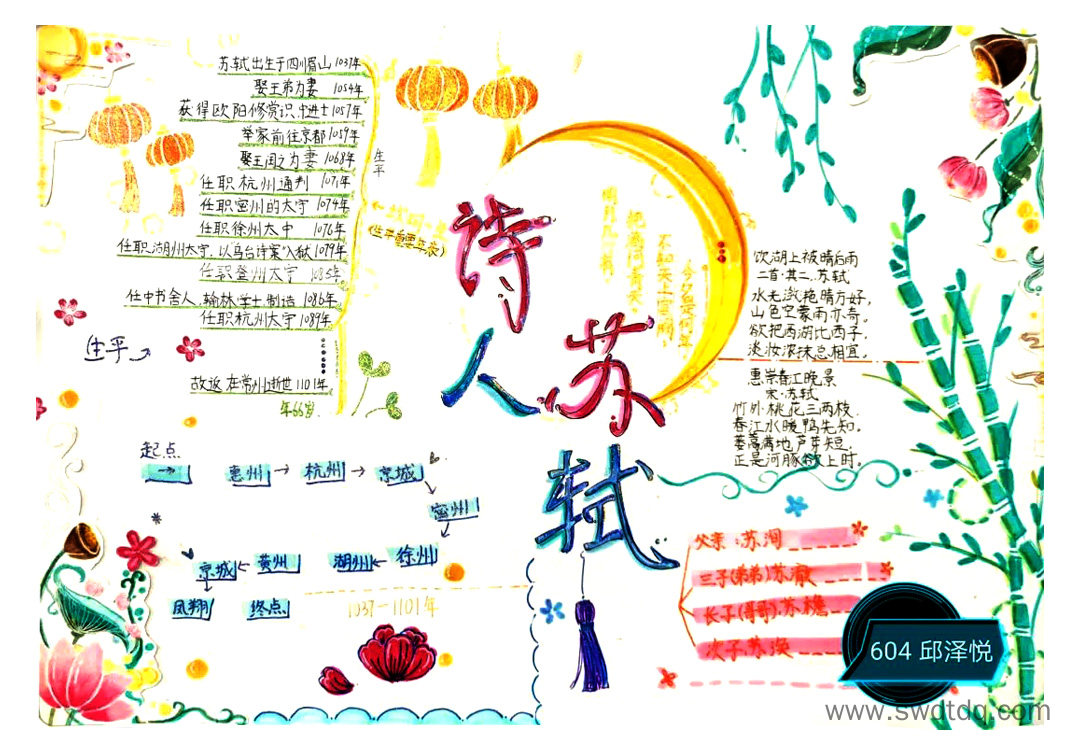 苏轼出生于四川眉山 1037年
娶王弗为妻 1054年
获得欧阳修赏识,中进士 1057年
举家前往京都 1059年
娶王闰之为妻 1068年
任职杭州通判 1071年
任职密州的太守 1074年
任职徐州太守 1076年
任职湖州太守,以乌台诗案入狱 1079年
任职登州太守 1085年
任中书舍人、翰林学士、制造 1086年
任职杭州太守 1089年
故返 在常州逝世 1101年
年66岁
生平
生平
(生平重要年表)
诗人
苏轼
明月几时有
把酒问青天
不知天上宫阙
今夕是何年
饮湖上初晴后雨
二首·其二 苏轼
水光潋滟晴方好,
山色空蒙雨亦奇。
欲把西湖比西子,
淡妆浓抹总相宜。
惠崇春江晚景
宋·苏轼
竹外桃花三两枝,
春江水暖鸭先知。
蒌蒿满地芦芽短,
正是河豚欲上时。
起点
→ 惠州 → 杭州 → 京城
密州
京城 黄州 湖州 徐州
凤翔 终点
1037-1101年
父亲:苏洵
三子(弟弟)苏澈
长子(哥哥):苏
次子:苏涣
604 邱泽悦
www.swdtdq.com